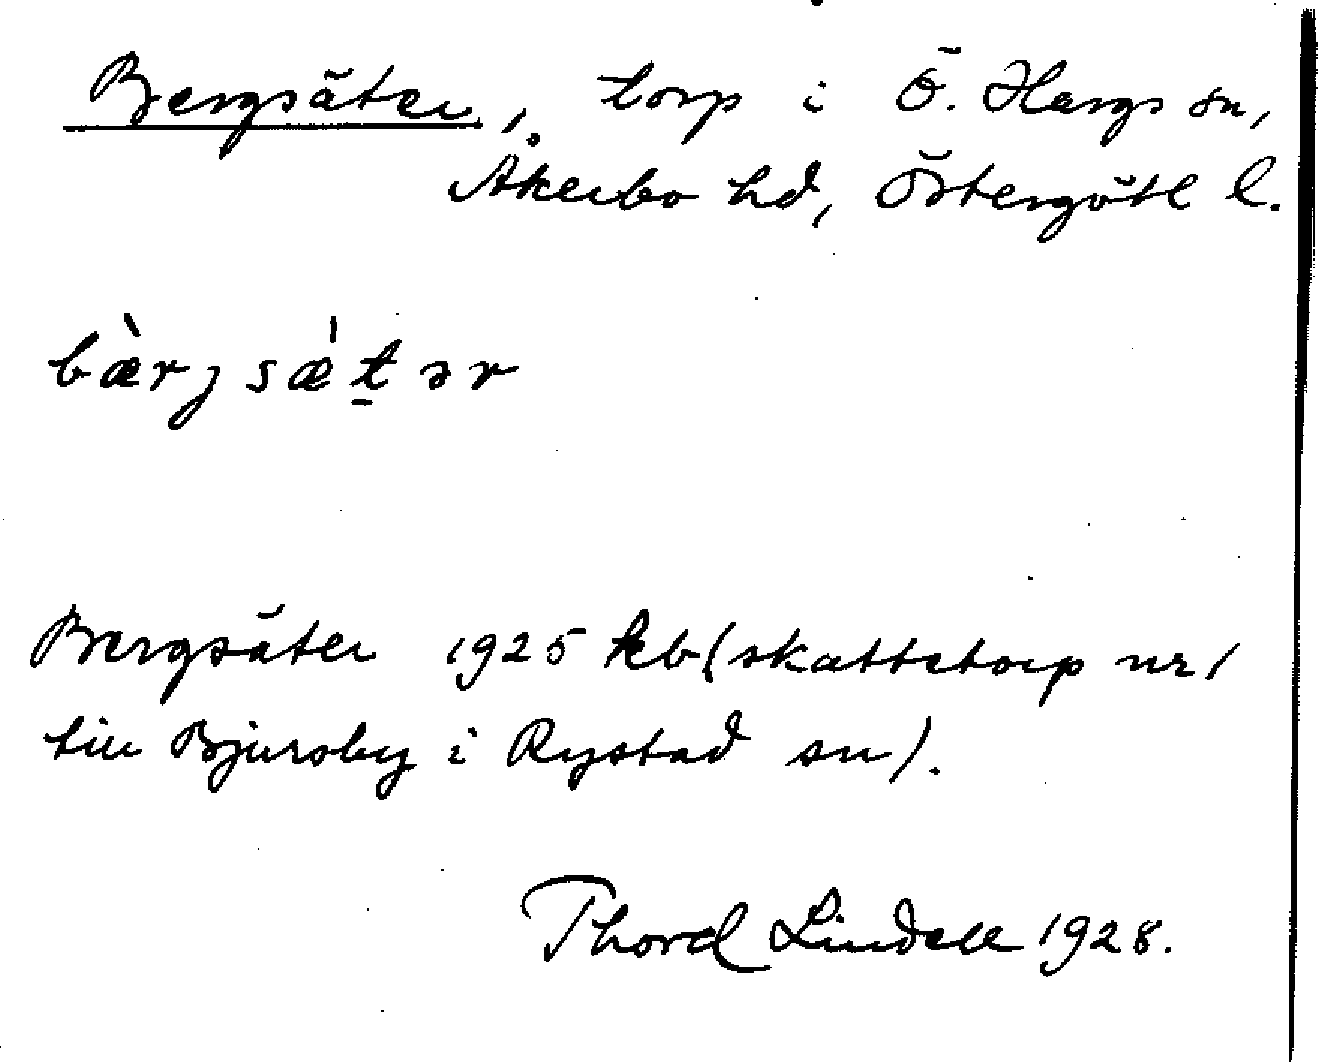 Bergsäter, torp i Ö. Hargs sn,
Åkerbo hd, Östergötl l.
bæ̀rjsǽt̠ər
Bergsäter 1925 kb (skattetorp nr 1
till Bjursby i Rystad sn).
Thord Lindell 1928.